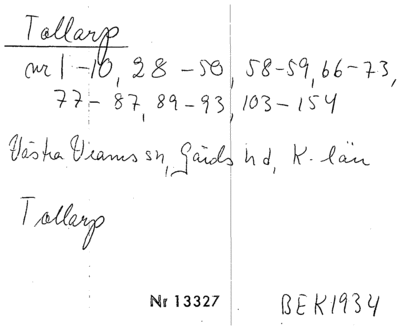 Tollarp
nr 1-10, 28-50, 58-59, 66-73,
77-87, 89-93, 103-154
Västra Vrams sn, Gärds hd, K. län
Tollarp
Nr 13327 BEK1934